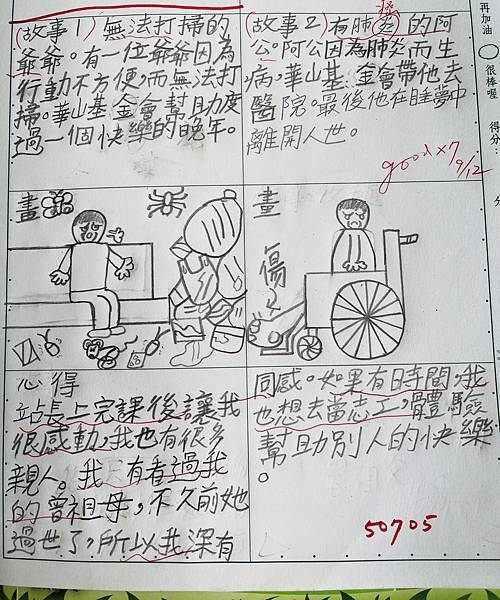 (故事1) 無法打掃的
爺爺。有一位爺爺因為
行動不方便,而無法打
掃。華山基金會幫助度
過一個快樂的晚年。
(故事2) 有肺炎的阿
公。阿公因為肺炎而生
病,華山基金會帶他去
醫院。最後他在睡夢中
離開人世。
good×7
9/12
再加油
很棒喔
得分:
畫
畫
傷
心得
站長上完課後讓我
很感動,我也有很多
親人。我有看過我
的曾祖母,不久前她
過世了,所以我深有
同感。如果有時間,我
也想去當志工,體驗
幫助別人的快樂
。
50705